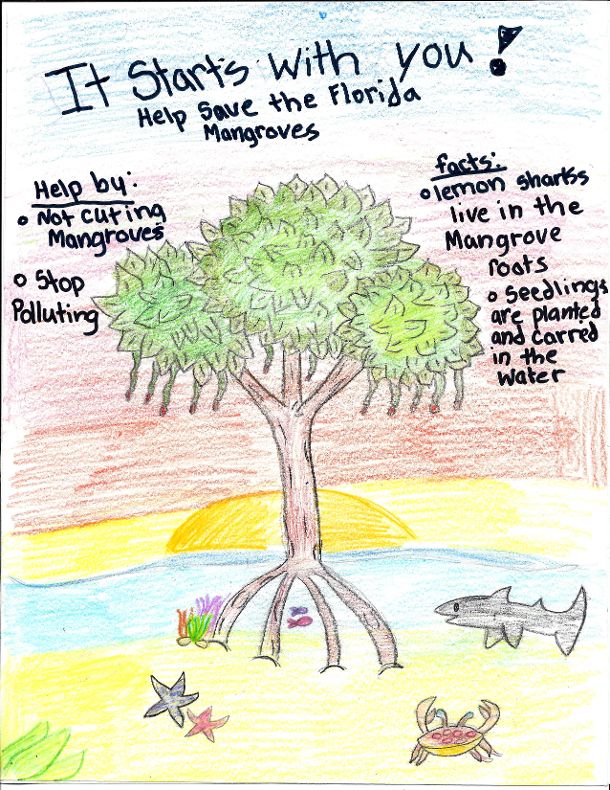 It Starts With you!
Help Save the Florida
Mangroves
Help by:
Not cuting
Mangroves
Stop
Polluting
facts:
lemon sharks
live in the
Mangrove
roots
Seedlings
are planted
and carred
in the
water